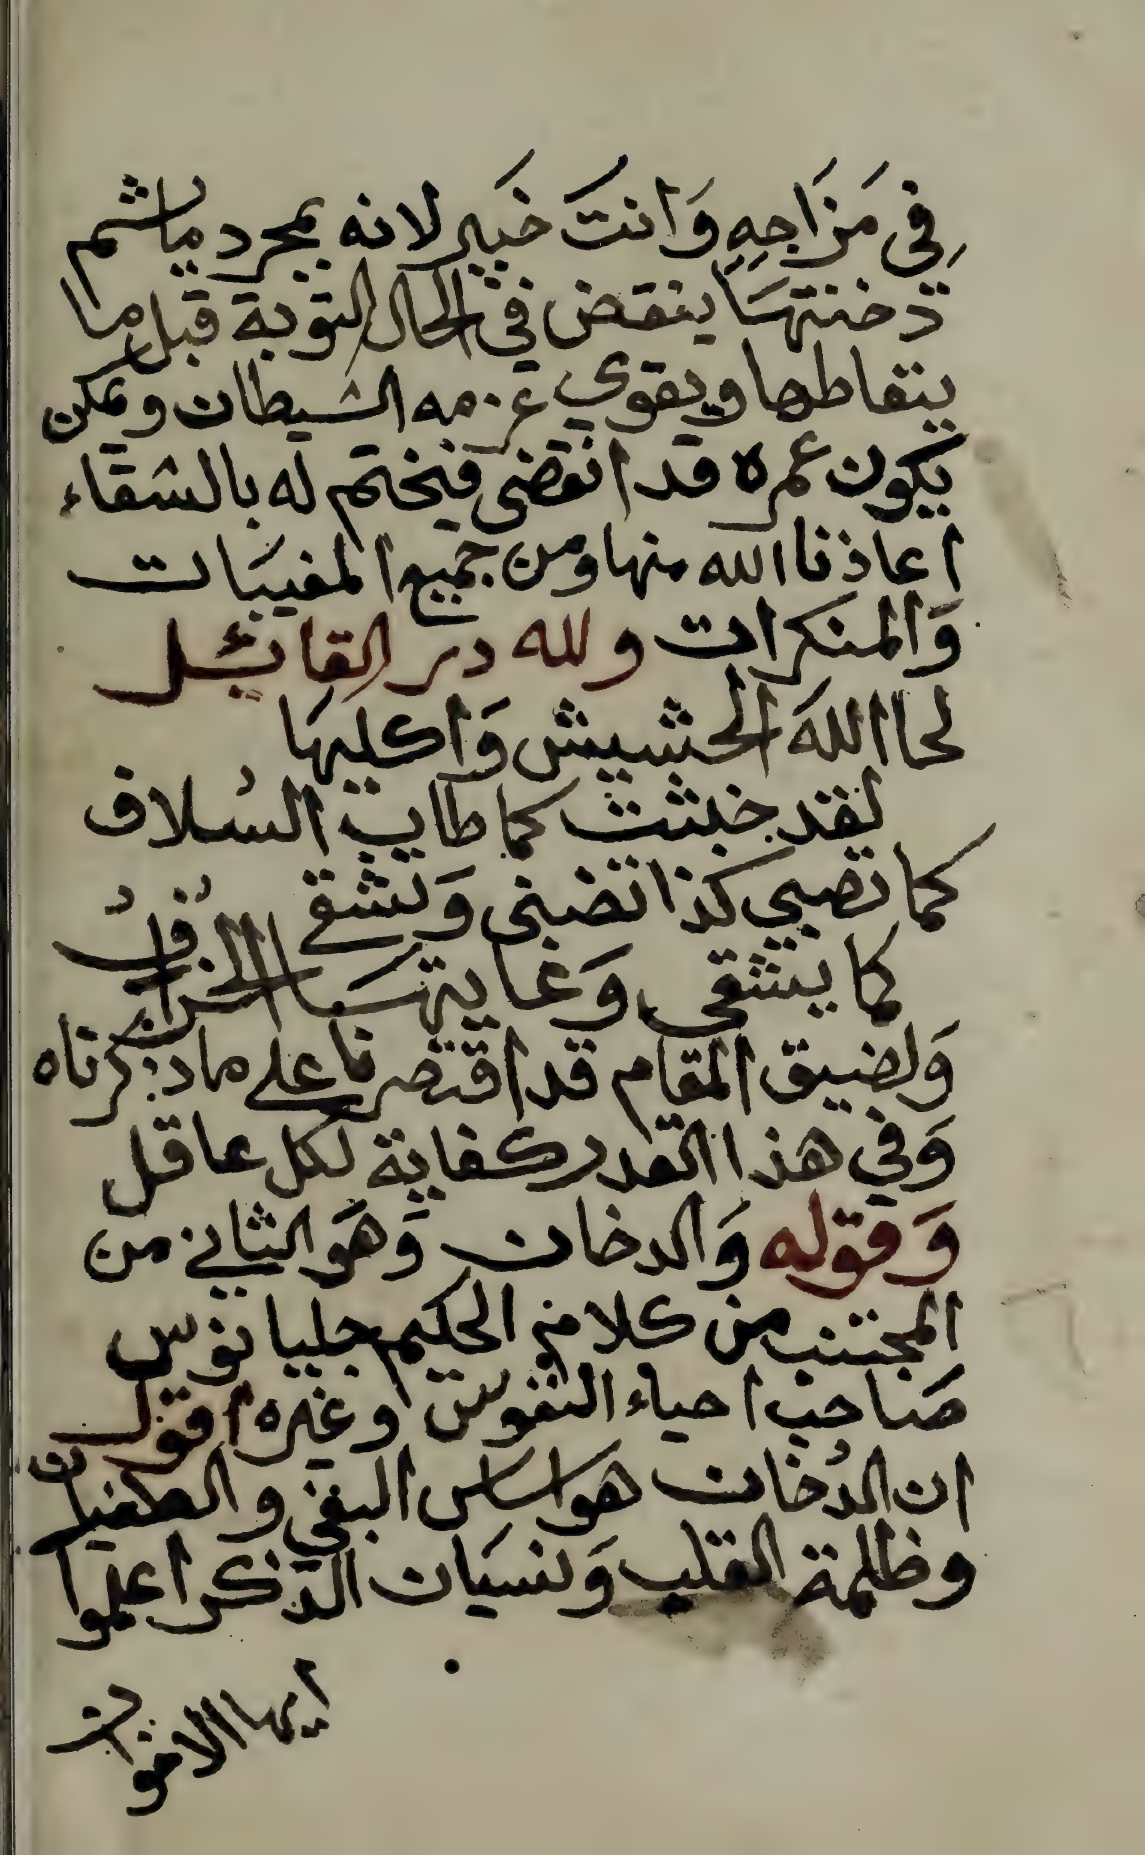 في مَزَاجِهِ وَانتَ خَبَير لانه بمجرد ماشم
دخنتهَا ينقض في الحال التوبة قبل ما
يتعاطها ويقوي عزمه الشيطان ويمكن
يكون عمره قد انقضى فيختم له بالشقاء
اعاذنا الله منها ومن جميع المغيبَات
وَالمنكرات ولله در القائل
لحا اللهَ الحشيش وَاكليهَا
لقد خبثت كما طاب السُلاف
كما تصبي كذا تضنى وَتشقي
كما يشقى وَغايتهَا الخرافُ
وَلضيق المقام قد اقتصرنا على ماذكرناه
وَفي هذا القدر كفاية لكل عاقل
وَقوله وَالدخان وَهَو الثاني من
المجتنب من كلام الحكيم جليانوس
صَاحب احياء النفوس وغيره اقول
ان الدُخان هو اساس البغي والطغيان
وظلمة القلب وَنسيَان الذكر اعلموا
ايها الاخوان